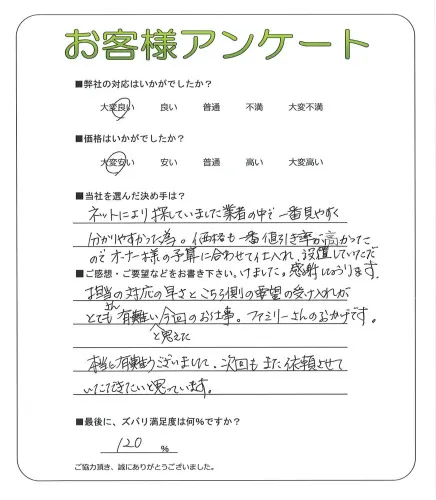 お客様アンケート
■弊社の対応はいかがでしたか?
大変良い 良い 普通 不満 大変不満
■価格はいかがでしたか?
大変安い 安い 普通 高い 大変高い
■当社を選んだ決め手は?
ネットにより探していました業者の中で一番見やすく
分かりやすかった為。価格も一番値引き率が高かった
のでオーナー様の予算に合わせて仕入れ、設置していただ
■ご感想・ご要望などをお書き下さい。けました。感謝しております。
担当さんの対応の早さとこちら側の要望の受け入れが
とても有難いと思えた今回のお仕事。ファミリーさんのおかげです。
本当に有難うございました、次回もまた依頼させて
いただきたいと思っています。
■最後に、ズバリ満足度は何%ですか?
120 %
ご協力頂き、誠にありがとうございました。